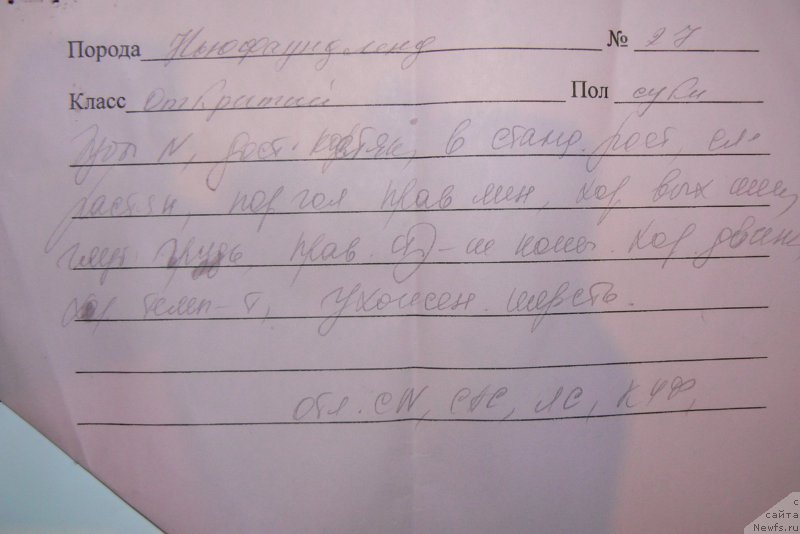 Порода Ньюфаундленд № 27
Класс Открытый Пол суки
Зубы N, дост. костяк, в станд. рост, сл.
растян, пор гол прав лин, хор вых шеи,
глуб грудь, прав. конеч. хор движ,
хор темп-т, ухожен. шерсть.
Отл. CW, CAC, ЛС, КЧФ,
с
сайта
Newfs.ru